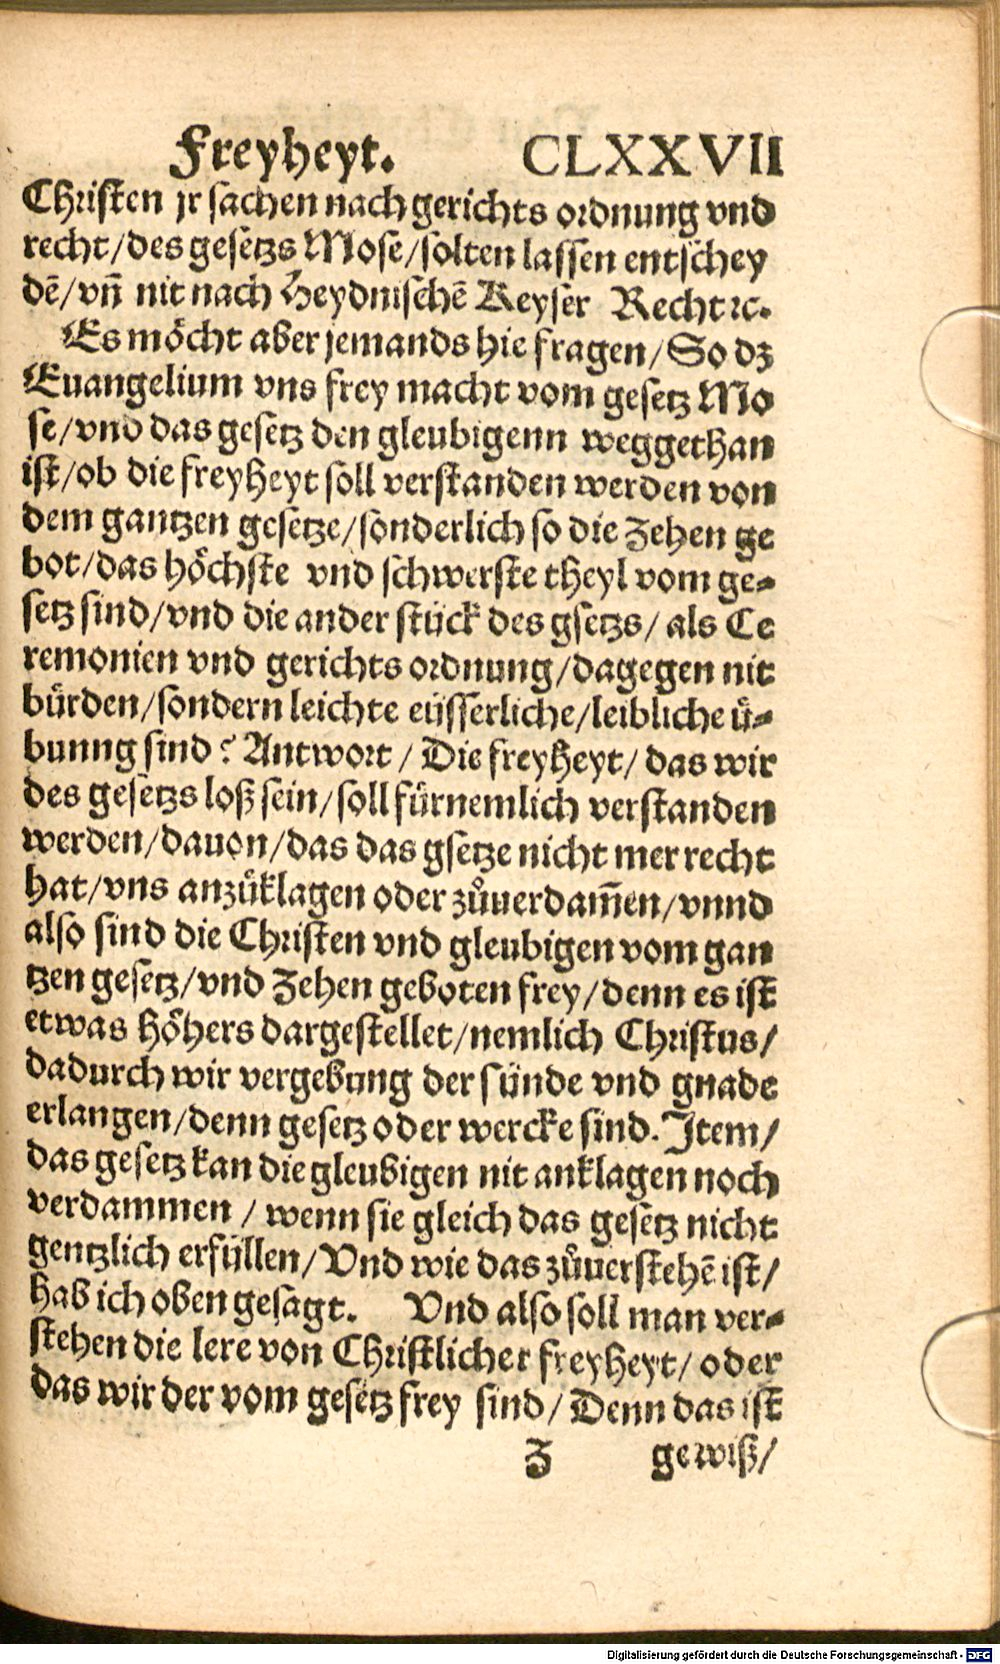 Freyheyt. CLXXVII
Christen jr sachen nach gerichts ordnung vnd
recht/des gesetzs Mose/solten lassen entschey
dē/vñ nit nach Heydnischē Keyser Recht ꝛc.
Es möcht aber jemands hie fragen/So dz
Euangelium vns frey macht vom gesetz Mo
se/vnd das gesetz den gleubigenn weggethan
ist/ob die freyheyt soll verstanden werden von
dem gantzen gesetze/sonderlich so die Zehen ge
bot/das höchste vnd schwerste theyl vom ge⸗
setz sind/vnd die ander stück des gsetzs/ als Ce
remonien vnd gerichts ordnung/dagegen nit
bürden/sondern leichte eüsserliche/leibliche ü⸗
bunng sind? Antwort / Die freyheyt/ das wir
des gesetzs loß sein/soll fürnemlich verstanden
werden/dauon/das das gsetze nicht mer recht
hat/vns anzůklagen oder zůuerdam̃en/vnnd
also sind die Christen vnd gleubigen vom gan
tzen gesetz/vnd Zehen geboten frey/denn es ist
etwas höhers dargestellet/nemlich Christus/
dadurch wir vergebung der sünde vnd gnade
erlangen/denn gesetz oder wercke sind. Item/
das gesetz kan die gleubigen nit anklagen noch
verdammen / wenn sie gleich das gesetz nicht
gentzlich erfüllen/Vnd wie das zůuerstehē ist/
hab ich oben gesagt. Vnd also soll man ver⸗
stehen die lere von Christlicher freyheyt/ oder
das wir der vom gesetz frey sind/ Denn das ist
Z gewiß/
Digitalisierung gefördert durch die Deutsche Forschungsgemeinschaft - DFG